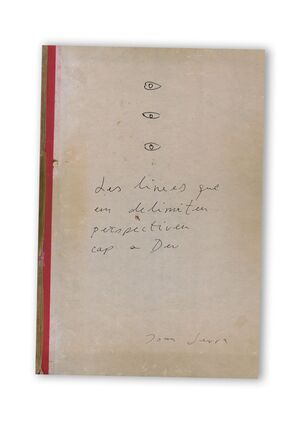 Les línies que
em delimiten
perspectiven
cap a Deu
Joan Serra